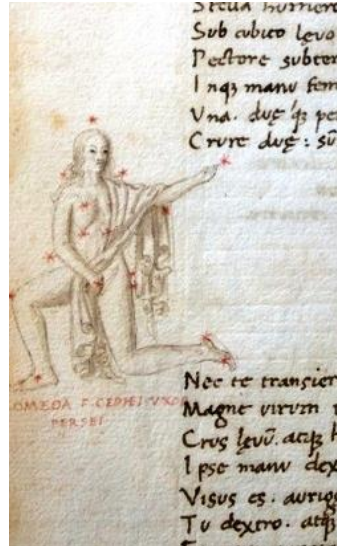 Stella humer
Sub cubito lęvo
Pectore subter
Inq3 manu fem
Una. duę q3 pe
Crure duę: sū
OMEDA F. CEPHEI VXO
PERSEI
Nec te transier
Magne virum
Crus lęvū. atq3 h
Ipse manu dex
Visus es. aurig
Tu dextro. atq3